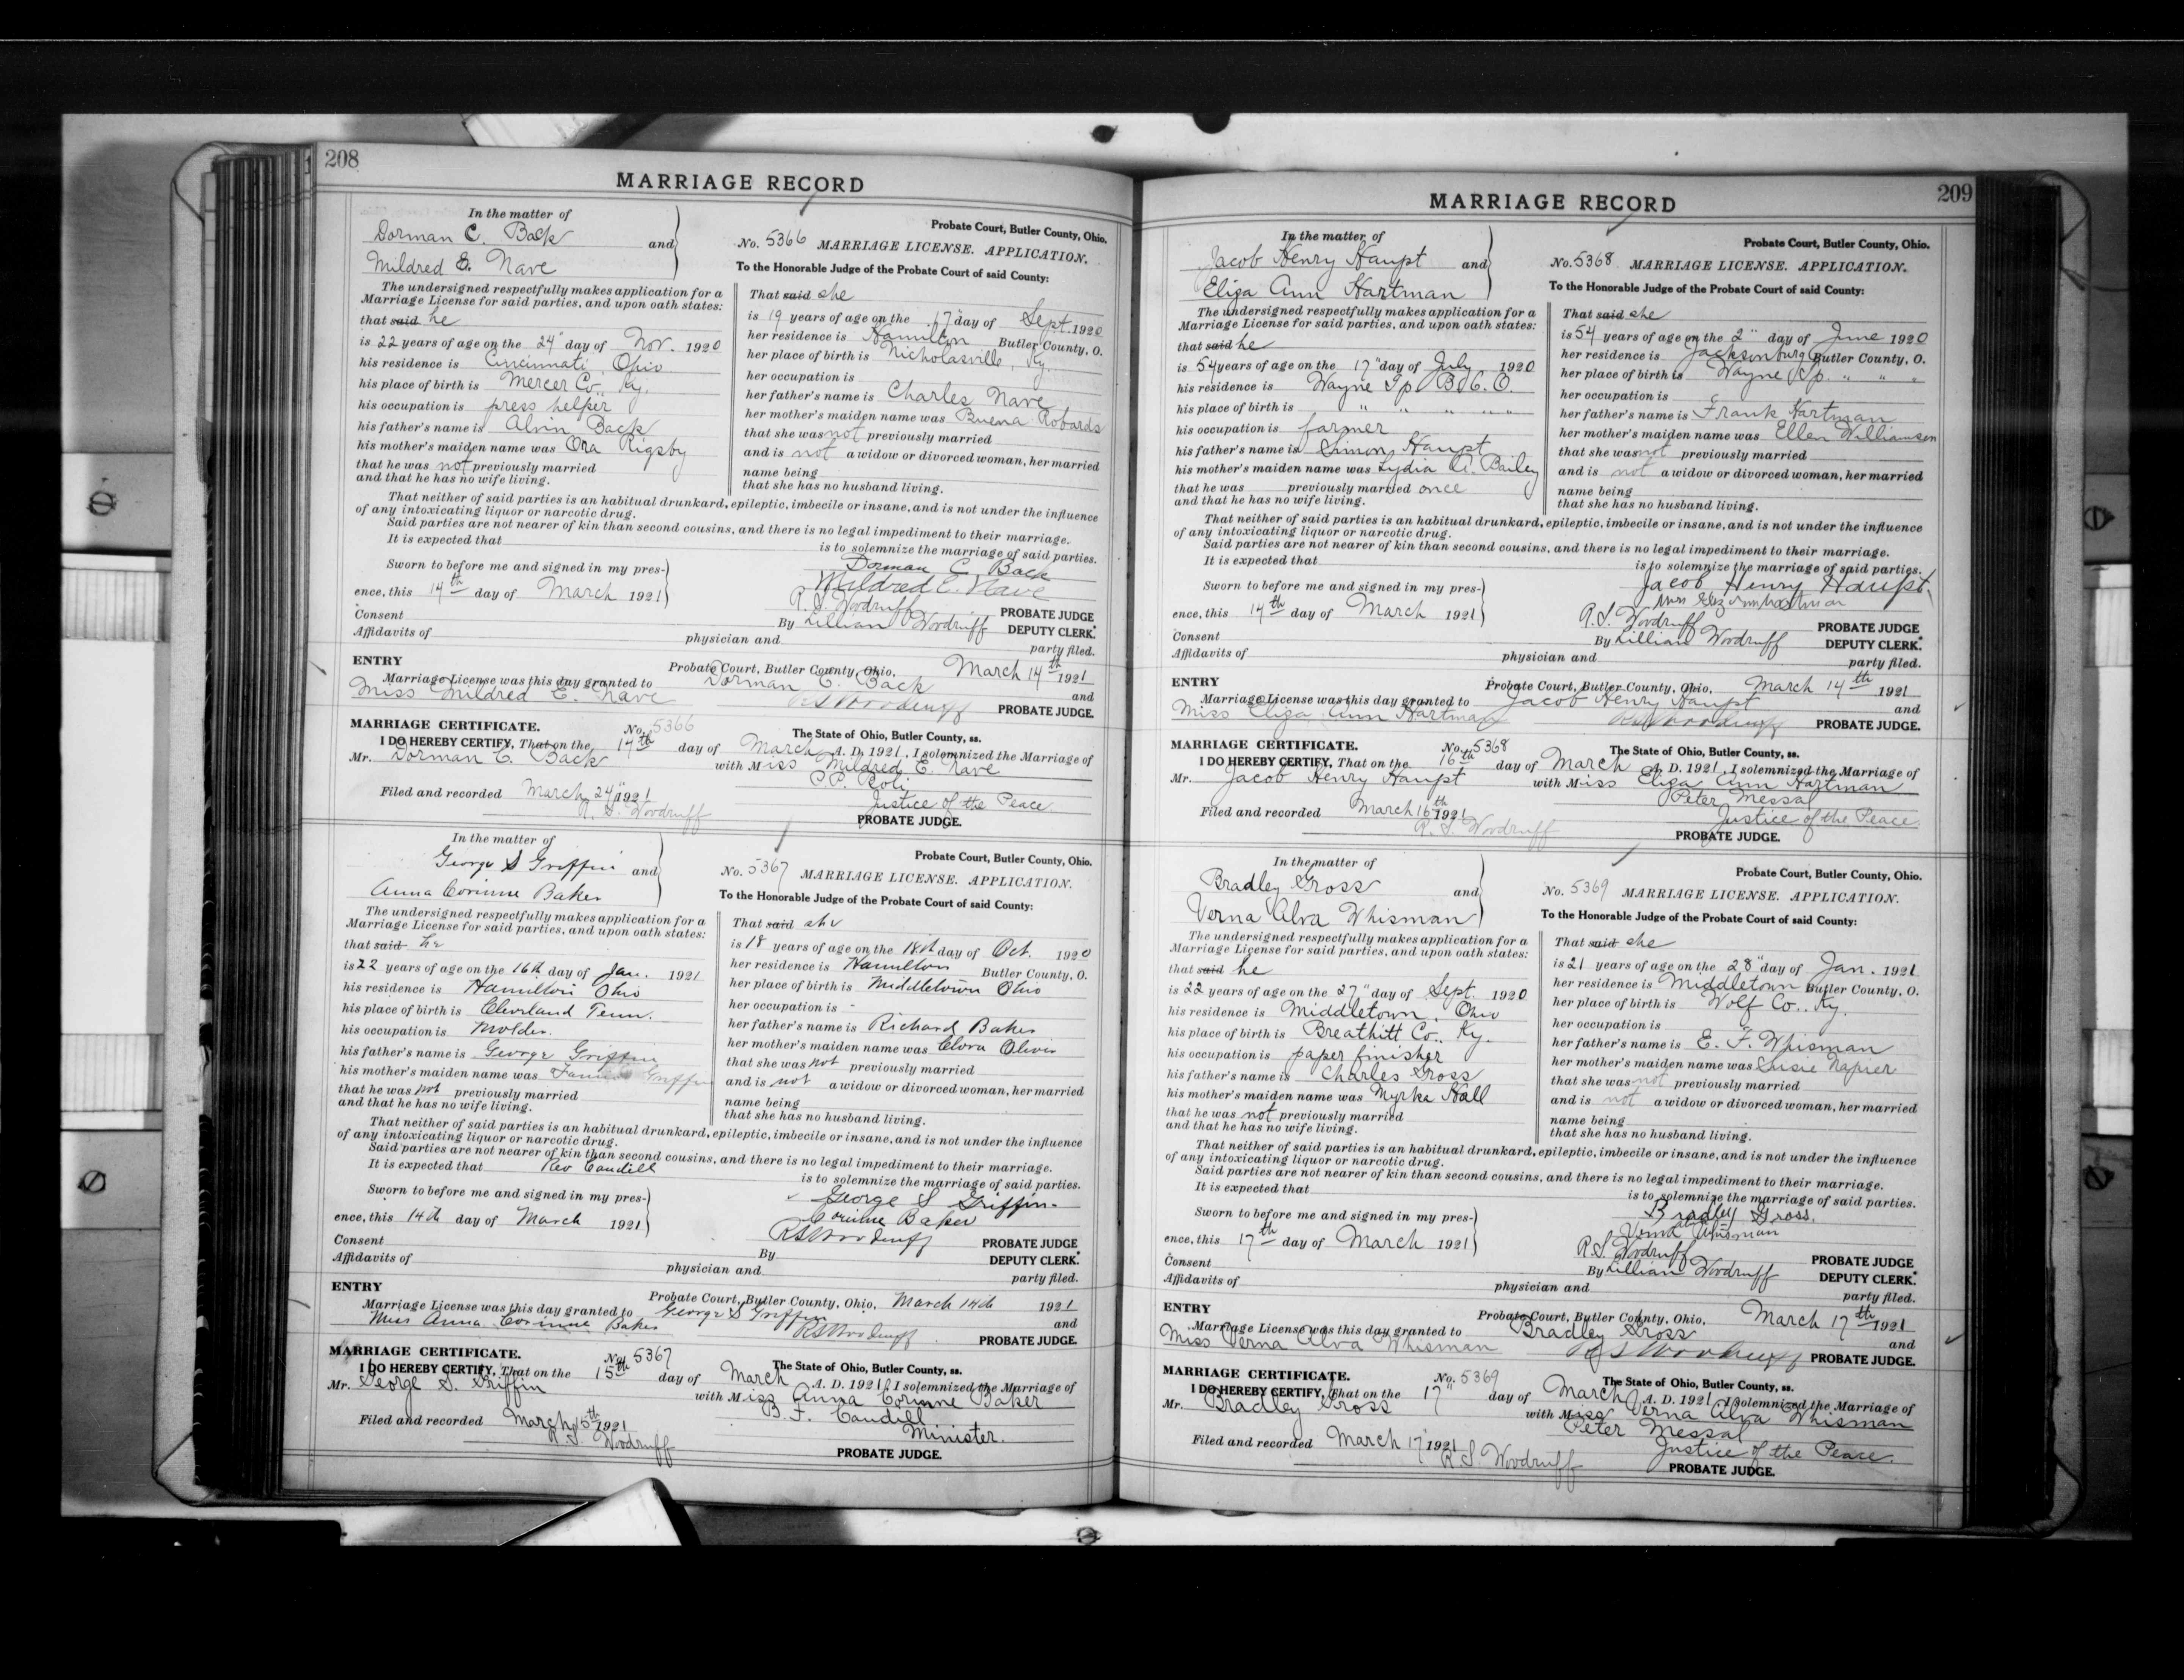 208
MARRIAGE RECORD
In the matter of
Dorman C. Back
and
Mildred E. Nave
The undersigned respectfully makes application for a
Marriage License for said parties, and upon oath states:
that said he
is 22 years of age on the 24" day of Nov. 1920
his residence is Cincinnati, Ohio
his place of birth is Mercer Co., Ky.
his occupation is press helper
his father's name is Alvin Back
his mother's maiden name was Ora Rigsby
that he was not previously married
and that he has no wife living.
Probate Court, Butler County, Ohio.
No. 5366 MARRIAGE LICENSE. APPLICATION.
To the Honorable Judge of the Probate Court of said County:
That said she
is 19 years of age on the 17" day of Sept. 1920
her residence is Hamilton Butler County, O.
her place of birth is Nicholasville, Ky.
her occupation is
her father's name is Charles Nave
her mother's maiden name was Buena Robards
that she was not previously married
and is not a widow or divorced woman, her married
name being
that she has no husband living.
That neither of said parties is an habitual drunkard, epileptic, imbecile or insane, and is not under the influence
of any intoxicating liquor or narcotic drug.
Said parties are not nearer of kin than second cousins, and there is no legal impediment to their marriage.
It is expected that
is to solemnize the marriage of said parties.
Dorman C. Back
Sworn to before me and signed in my pres-
Mildred E. Nave
ence, this 14th day of March 1921
R. S. Woodruff PROBATE JUDGE
Consent By Lillian Woodruff DEPUTY CLERK.
Affidavits of physician and party filed.
ENTRY Probate Court, Butler County, Ohio, March 14th 1921
Marriage License was this day granted to Dorman C. Back and
Miss Mildred E. Nave R S Woodruff PROBATE JUDGE.
MARRIAGE CERTIFICATE. No. 5366 The State of Ohio, Butler County, ss.
I DO HEREBY CERTIFY, That on the 14th day of March A. D. 1921, I solemnized the Marriage of
Mr. Dorman C. Back with Miss Mildred E. Nave
C.P. Boli
Filed and recorded March 24" 1921 Justice of the Peace
R. S. Woodruff PROBATE JUDGE.
In the matter of
George S Griffin and
Anna Corinne Baker
The undersigned respectfully makes application for a
Marriage License for said parties, and upon oath states:
that said he
is 22 years of age on the 16th day of Jan. 1921
his residence is Hamilton Ohio
his place of birth is Cleveland Tenn.
his occupation is Molder.
his father's name is George Griffin
his mother's maiden name was Griffin
that he was not previously married
and that he has no wife living.
Probate Court, Butler County, Ohio.
No. 5367 MARRIAGE LICENSE. APPLICATION.
To the Honorable Judge of the Probate Court of said County:
That said she
is 18 years of age on the 18th day of Oct. 1920
her residence is Hamilton Butler County, O.
her place of birth is Middletown Ohio
her occupation is -
her father's name is Richard Baker
her mother's maiden name was Clora Oliver
that she was not previously married
and is not a widow or divorced woman, her married
name being
that she has no husband living.
That neither of said parties is an habitual drunkard, epileptic, imbecile or insane, and is not under the influence
of any intoxicating liquor or narcotic drug.
Said parties are not nearer of kin than second cousins, and there is no legal impediment to their marriage.
It is expected that Rev Caudill
is to solemnize the marriage of said parties.
George S Griffin
Sworn to before me and signed in my pres-
Corinne Baker
ence, this 14th day of March 1921
RS Woodruff PROBATE JUDGE
Consent By DEPUTY CLERK.
Affidavits of physician and party filed.
ENTRY Probate Court, Butler County, Ohio, March 14th 1921
Marriage License was this day granted to George S Griffin and
Miss Anna Corinne Baker RS Woodruff PROBATE JUDGE.
MARRIAGE CERTIFICATE. No. 5367 The State of Ohio, Butler County, ss.
I DO HEREBY CERTIFY, That on the 15th day of March A. D. 1921, I solemnized the Marriage of
Mr. George S. Griffin with Miss Anna Corinne Baker
B. F. Caudill
Filed and recorded March 15th 1921 Minister.
R. S. Woodruff PROBATE JUDGE.
209
MARRIAGE RECORD
In the matter of
Jacob Henry Haupt and
Eliza Ann Hartman
The undersigned respectfully makes application for a
Marriage License for said parties, and upon oath states:
that said he
is 54 years of age on the 17" day of July 1920
his residence is Wayne Tp. B. C. O.
his place of birth is " " " " "
his occupation is farmer
his father's name is Simon Haupt
his mother's maiden name was Lydia A. Bailey
that he was previously married once
and that he has no wife living.
Probate Court, Butler County, Ohio.
No. 5368 MARRIAGE LICENSE. APPLICATION.
To the Honorable Judge of the Probate Court of said County:
That said she
is 54 years of age on the 2" day of June 1920
her residence is Jacksonburg Butler County, O.
her place of birth is Wayne Tp. " " "
her occupation is
her father's name is Frank Hartman
her mother's maiden name was Ellen Williamson
that she was not previously married
and is not a widow or divorced woman, her married
name being
that she has no husband living.
That neither of said parties is an habitual drunkard, epileptic, imbecile or insane, and is not under the influence
of any intoxicating liquor or narcotic drug.
Said parties are not nearer of kin than second cousins, and there is no legal impediment to their marriage.
It is expected that
is to solemnize the marriage of said parties.
Jacob Henry Haupt.
Sworn to before me and signed in my pres-
ence, this 14th day of March 1921
R. S. Woodruff PROBATE JUDGE
Consent By Lillian Woodruff DEPUTY CLERK.
Affidavits of physician and party filed.
ENTRY Probate Court, Butler County, Ohio, March 14th 1921
Marriage License was this day granted to Jacob Henry Haupt and
Miss Eliza Ann Hartman RS Woodruff PROBATE JUDGE.
MARRIAGE CERTIFICATE. No. 5368 The State of Ohio, Butler County, ss.
I DO HEREBY CERTIFY, That on the 16th day of March A. D. 1921, I solemnized the Marriage of
Mr. Jacob Henry Haupt with Miss Eliza Ann Hartman
Peter Messal
Filed and recorded March 16th 1921 Justice of the Peace.
R. S. Woodruff PROBATE JUDGE.
In the matter of
Bradley Gross and
Verna Alva Whisman
The undersigned respectfully makes application for a
Marriage License for said parties, and upon oath states:
that said he
is 22 years of age on the 27" day of Sept. 1920
his residence is Middletown, Ohio
his place of birth is Breathitt Co., Ky.
his occupation is paper finisher
his father's name is Charles Gross
his mother's maiden name was Myrka Hall
that he was not previously married
and that he has no wife living.
Probate Court, Butler County, Ohio.
No. 5369 MARRIAGE LICENSE. APPLICATION.
To the Honorable Judge of the Probate Court of said County:
That said she
is 21 years of age on the 28" day of Jan. 1921
her residence is Middletown Butler County, O.
her place of birth is Wolf Co., Ky.
her occupation is
her father's name is E. F. Whisman
her mother's maiden name was Susie Napier
that she was not previously married
and is not a widow or divorced woman, her married
name being
that she has no husband living.
That neither of said parties is an habitual drunkard, epileptic, imbecile or insane, and is not under the influence
of any intoxicating liquor or narcotic drug.
Said parties are not nearer of kin than second cousins, and there is no legal impediment to their marriage.
It is expected that
is to solemnize the marriage of said parties.
Bradley Gross.
Sworn to before me and signed in my pres-
Verna Alva Whisman
ence, this 17th day of March 1921
R. S. Woodruff PROBATE JUDGE
Consent By Lillian Woodruff DEPUTY CLERK.
Affidavits of physician and party filed.
ENTRY Probate Court, Butler County, Ohio, March 17th 1921
Marriage License was this day granted to Bradley Gross and
Miss Verna Alva Whisman R S Woodruff PROBATE JUDGE.
MARRIAGE CERTIFICATE. No. 5369 The State of Ohio, Butler County, ss.
I DO HEREBY CERTIFY, That on the 17" day of March A. D. 1921, I solemnized the Marriage of
Mr. Bradley Gross with Miss Verna Alva Whisman
Peter Messal
Filed and recorded March 17" 1921 Justice of the Peace.
R. S. Woodruff PROBATE JUDGE.